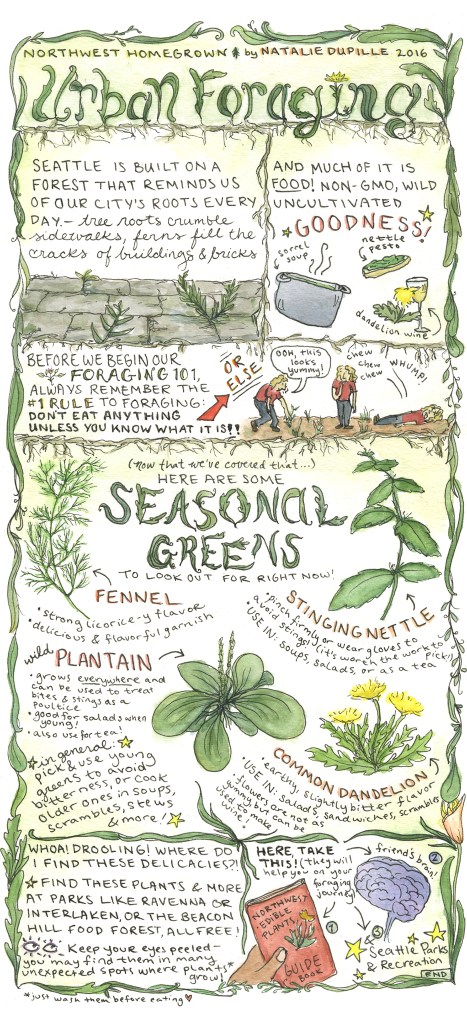 NORTHWEST HOMEGROWN by NATALIE DUPILLE 2016
Urban Foraging
SEATTLE IS BUILT ON A
FOREST THAT REMINDS US
OF OUR CITY'S ROOTS EVERY
DAY.— tree roots crumble
sidewalks, ferns fill the
cracks of buildings & bricks
AND MUCH OF IT IS
FOOD! NON-GMO, WILD
UNCULTIVATED
GOODNESS!
sorrel
soup
nettle
pesto
dandelion wine
BEFORE WE BEGIN OUR
FORAGING 101,
ALWAYS REMEMBER THE
#1 RULE TO FORAGING:
DON'T EAT ANYTHING
UNLESS YOU KNOW WHAT IT IS!!
OR
ELSE
OOH, this
looks
yummy!
chew
chew
chew
WHUMP!
(now that we've covered that...)
HERE ARE SOME
SEASONAL
GREENS
TO LOOK OUT FOR RIGHT NOW!
FENNEL
• strong licorice-y flavor
• delicious & flavorful garnish
STINGING NETTLE
• pinch firmly or wear gloves to
avoid stings! (it's worth the work to pick!)
• USE IN: soups, salads, or as a tea
wild PLANTAIN
• grows everywhere and
can be used to treat
bites & stings as a
poultice
• good for salads when
young!
• also use for tea!
in general:
pick & use young
greens to avoid
bitterness, or cook
older ones in soups,
stews
scrambles,
& more!
COMMON DANDELION
• earthy, slightly bitter flavor
• USE IN: salads, sandwiches, scrambles
• flowers are not as
yummy but can be
used to make
wine!
WHOA! DROOLING! WHERE DO
I FIND THESE DELICACIES?!
FIND THESE PLANTS & MORE
AT PARKS LIKE RAVENNA OR
INTERLAKEN, OR THE BEACON
HILL FOOD FOREST, ALL FREE!
Keep your eyes peeled—
you may find them in many
unexpected spots where plants*
grow!
HERE, TAKE
THIS! (they will
help you on your
foraging
journey)
1
NORTHWEST
EDIBLE
PLANTS
GUIDE
BOOK
friend's brain!
2
3
Seattle Parks
& Recreation
END
*just wash them before eating